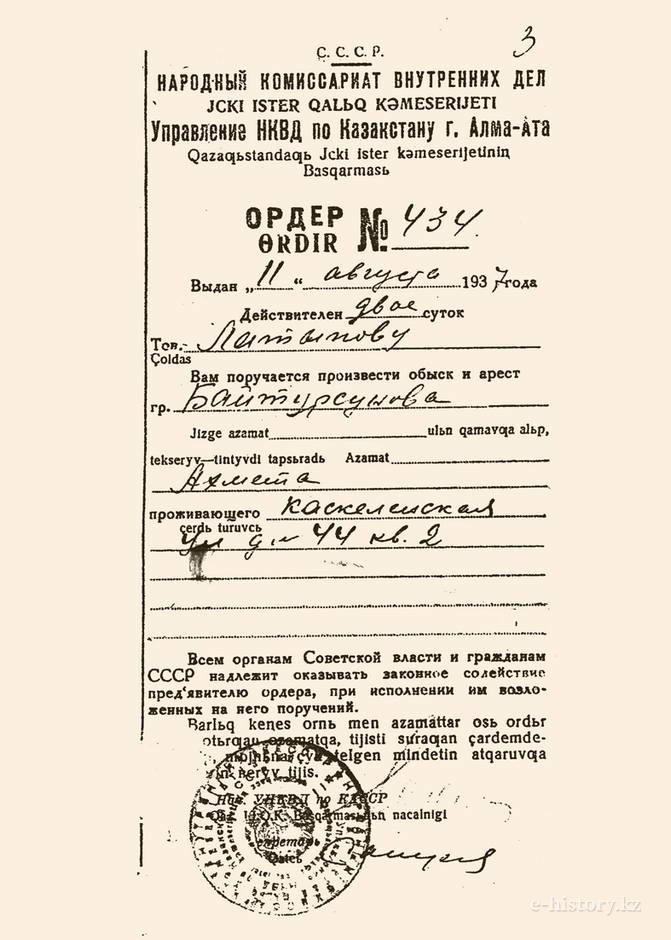 3
С. С. С. Р.
НАРОДНЫЙ КОМИССАРИАТ ВНУТРЕННИХ ДЕЛ
JCKI ISTER QALЬQ KƏMESERIJETI
Управление НКВД по Казакстану г. Алма-Ата
Qazaqьstandaqь Jcki ister kəmeserijetiniꞑ
Basqarmasь
ОРДЕР № 434.
ɵRDIR
Выдан „11“ августа 1937 года
Действителен двое суток
Тов. Латыпову
Çoldas
Вам поручается произвести обыск и арест
гр. Байтурсунова
Jizge azamat ulьn qamavqa alьp,
tekseryv—tintyvdi tapsьradь Azamat
Ахмета
проживающего Каскеленская
çerdь turuvcь
ул д № 44 кв. 2
Всем органам Советской власти и гражданам
СССР надлежит оказывать законное солействие
пред'явителю ордера, при исполнении им возло-
женных на него поручений.
Barlьq keꞑes ornь men azamattar osь ordьr
tijisti suraqan çardemde-
telgen mindetin atqaruvqa
tijis.
Нач. УНКВД по КАССР
Basqarmasьnьꞑ nacalnigi
e-history.kz